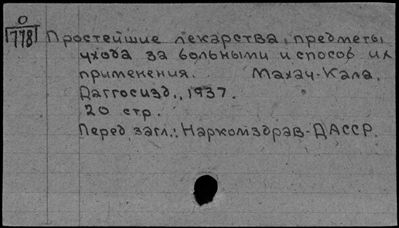 О
778
Простейшие лекарства, предметы
ухода за больными и способ их
применения. Махач-Кала.
Даггосизд., 1937.
20 стр.
Перед загл.: Наркомздрав-ДАССР.